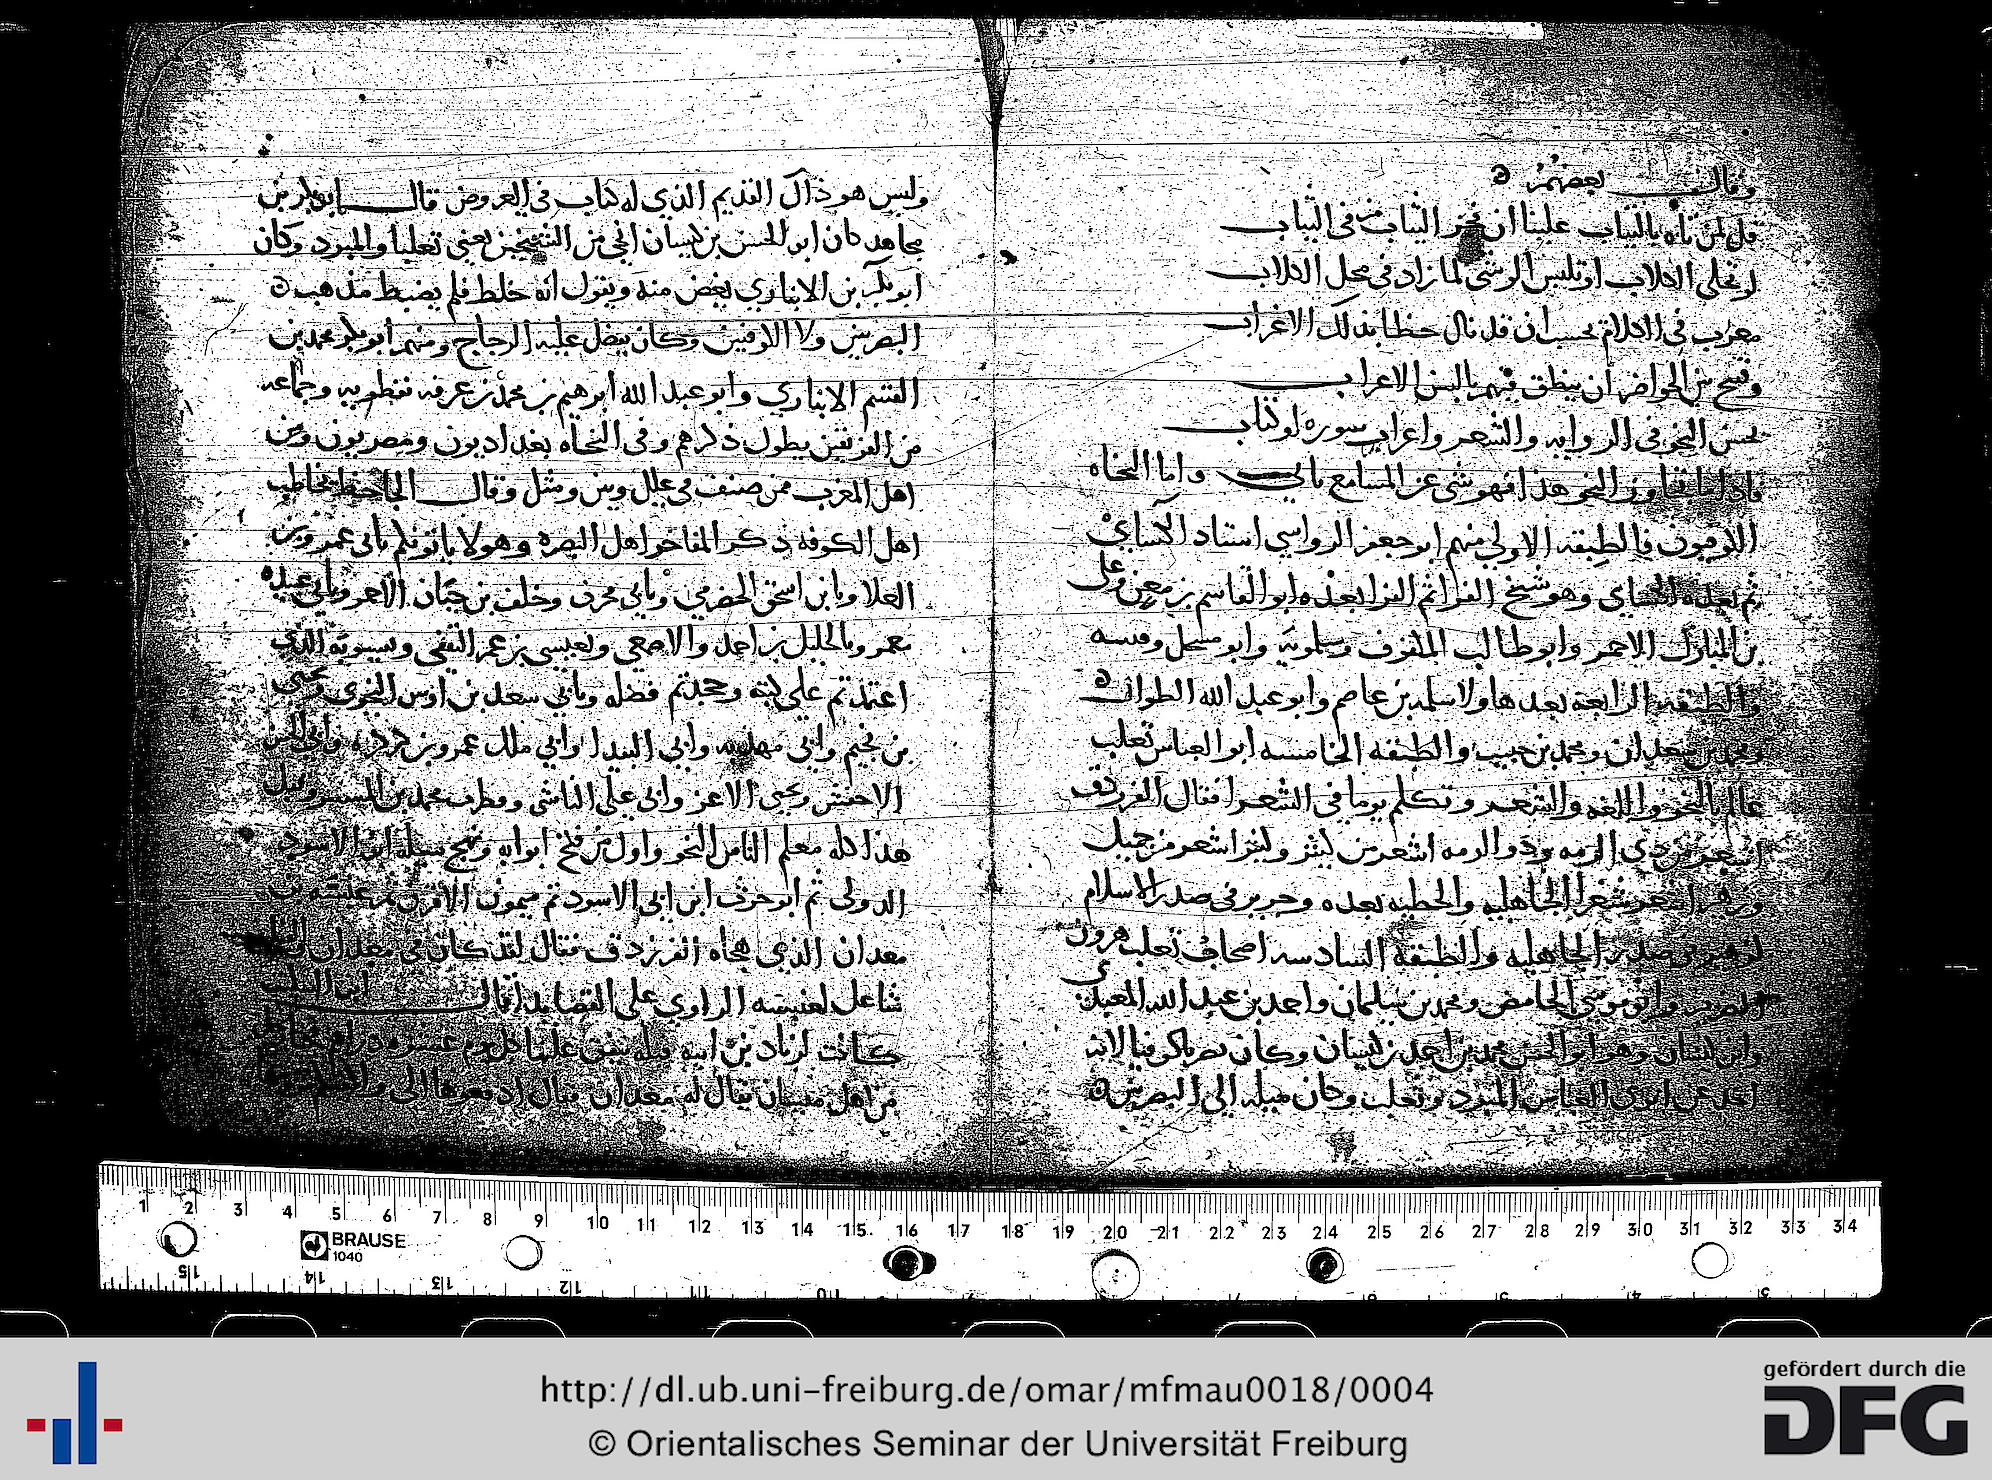 وقال بعضهم
قل لمن تاه بالثياب علينا ان فخر الثياب في الثياب
لو تحلى الكلاب او تلبس الوشى لما زاد في محل الكلاب
معرب في الكلام يحسب ان قد نال حظا بذلك الاغراب
وقبيح من الحواضر ان ينطق فيهم بالسن الاعراب
يحسن النحو في الروايه والشعر واعراب سورة او كتاب
فاذا ما النحو هذا فهو شى عن المسامع نابي واما النحاه
الكوفيون فالطبقه الاولى منهم ابو جعفر الرواسي استاد الكساي
ثم بعده الكساي وهو شيخ الفرا ثم الفرا بعده ابو القاسم بن معن وعلى
بن المبارك الاحمر وابو طالب المكفوف وسلمويه وابو مسحل وقتيبه
والطبقه الرابعه بعد هاولا سلمه بن عاصم وابو عبد الله الطوال
ومحمد بن سعدان ومحمد بن حبيب والطبقه الخامسه ابو العباس ثعلب
عالم بالنحو واللغه والشعر وتكلم يوما في الشعرا فقال الفرزدق
اشعر من ذي الرمه وذو الرمه اشعر من كثير وكثير اشعر من جميل
وزهير اشعر شعرا الجاهليه والحطيه بعده وجرير في صدر الاسلام
كزهير في صدر الجاهليه والطبقة السادسه اصحاب ثعلب هرون
الضرير وابو موسى الحامض ومحمد بن سليمان واحمد بن عبد الله المعبدي
وابن كيسان وهو ابو الحسن محمد بن احمد بن كيسان وكان بصريا كوفيا لانه
اخذ عن ابوي العباس المبرد وثعلب وكان ميله الى البصريين
وليس هو ذاك القديم الذي له كتاب في العروض قال ابو بكر بن
مجاهد كان ابو الحسن بن كيسان انحى من الشيخين يعني ثعلبا والمبرد وكان
ابو بكر بن الانباري يغض منه ويقول انه خلط فلم يضبط مذهب
البصريين ولا الكوفيين وكان يفضل عليه الزجاج ومنهم ابو بكر محمد بن
القسم الانباري وابو عبد الله ابرهيم بن محمد بن عرفه نفطويه وجماعه
من الفريقين يطول ذكرهم وفي النحاه بغداديون ومصريون ومن
اهل المغرب ممن صنف في علل وبين ومثل وقال الجاحظ يخاطب
اهل الكوفه ذكر المفاخر اهل البصره وهولا ياتونكم بابي عمرو بن
العلا وبابن اسحق الحضرمي وبابي محرز وخلف بن حيان الاحمر وبابي عبيده
معمر وبالخليل بن احمد والاصمعي وبعيسى بن عمر الثقفي وبسيبويه الذي
اعتمدتم على كتبه وجحدتم فضله وبابي سعد بن اوس النحوي ويحيى
بن نجيم وابي مهديه وابي البيدا وابي ملك عمرو بن كركره وابي الحسن
الاخفش ويحيى الاعز وابي علي الناشى وقطرب محمد بن المستنير وقبل
هذا كله معلم الناس النحو واول من فتح ابوابه ونهج سبيله ابو الاسود
الدولى ثم ابو حرب ابن ابي الاسود ثم ميمون الاقرن ثم عنبسه بن
معدان الذي هجاه الفرزدق فقال لقد كان في معدان والفيل
شاغل لعنبسه الراوي على القصايدا قال
كانت لزياد بن ابيه فيله ينفق عليها كل يوم عشره دراهم
من اهل ميسان يقال له معدان فقال ادفعوها الي
http://dl.ub.uni-freiburg.de/omar/mfmau0018/0004
© Orientalisches Seminar der Universität Freiburg
gefördert durch die
DFG
BRAUSE
1040